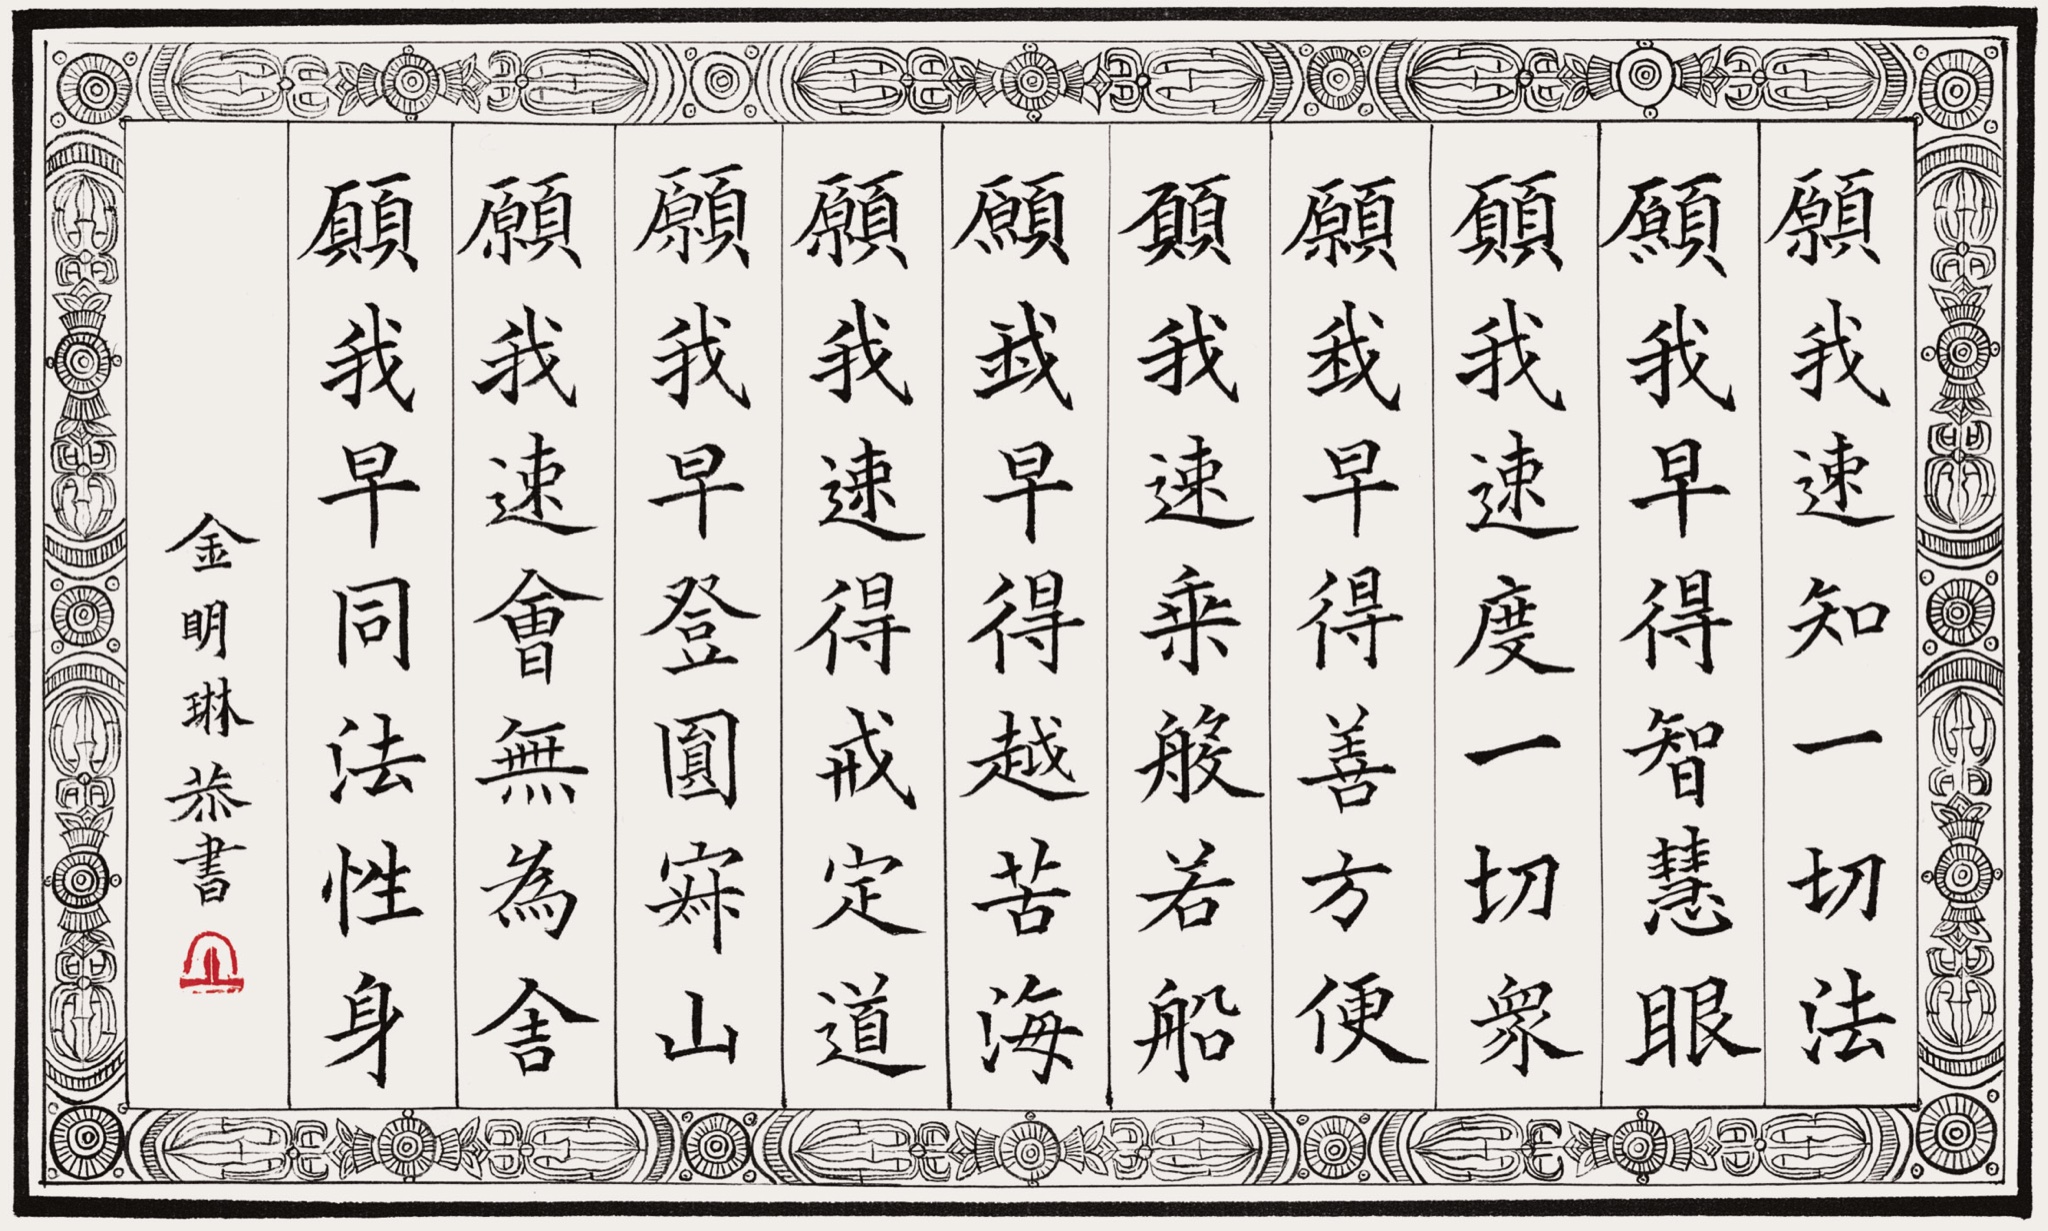 願我速知一切法
願我早得智慧眼
願我速度一切衆
願我早得善方便
願我速乘般若船
願我早得越苦海
願我速得戒定道
願我早登圓寂山
願我速會無為舍
願我早同法性身
金明琳恭書